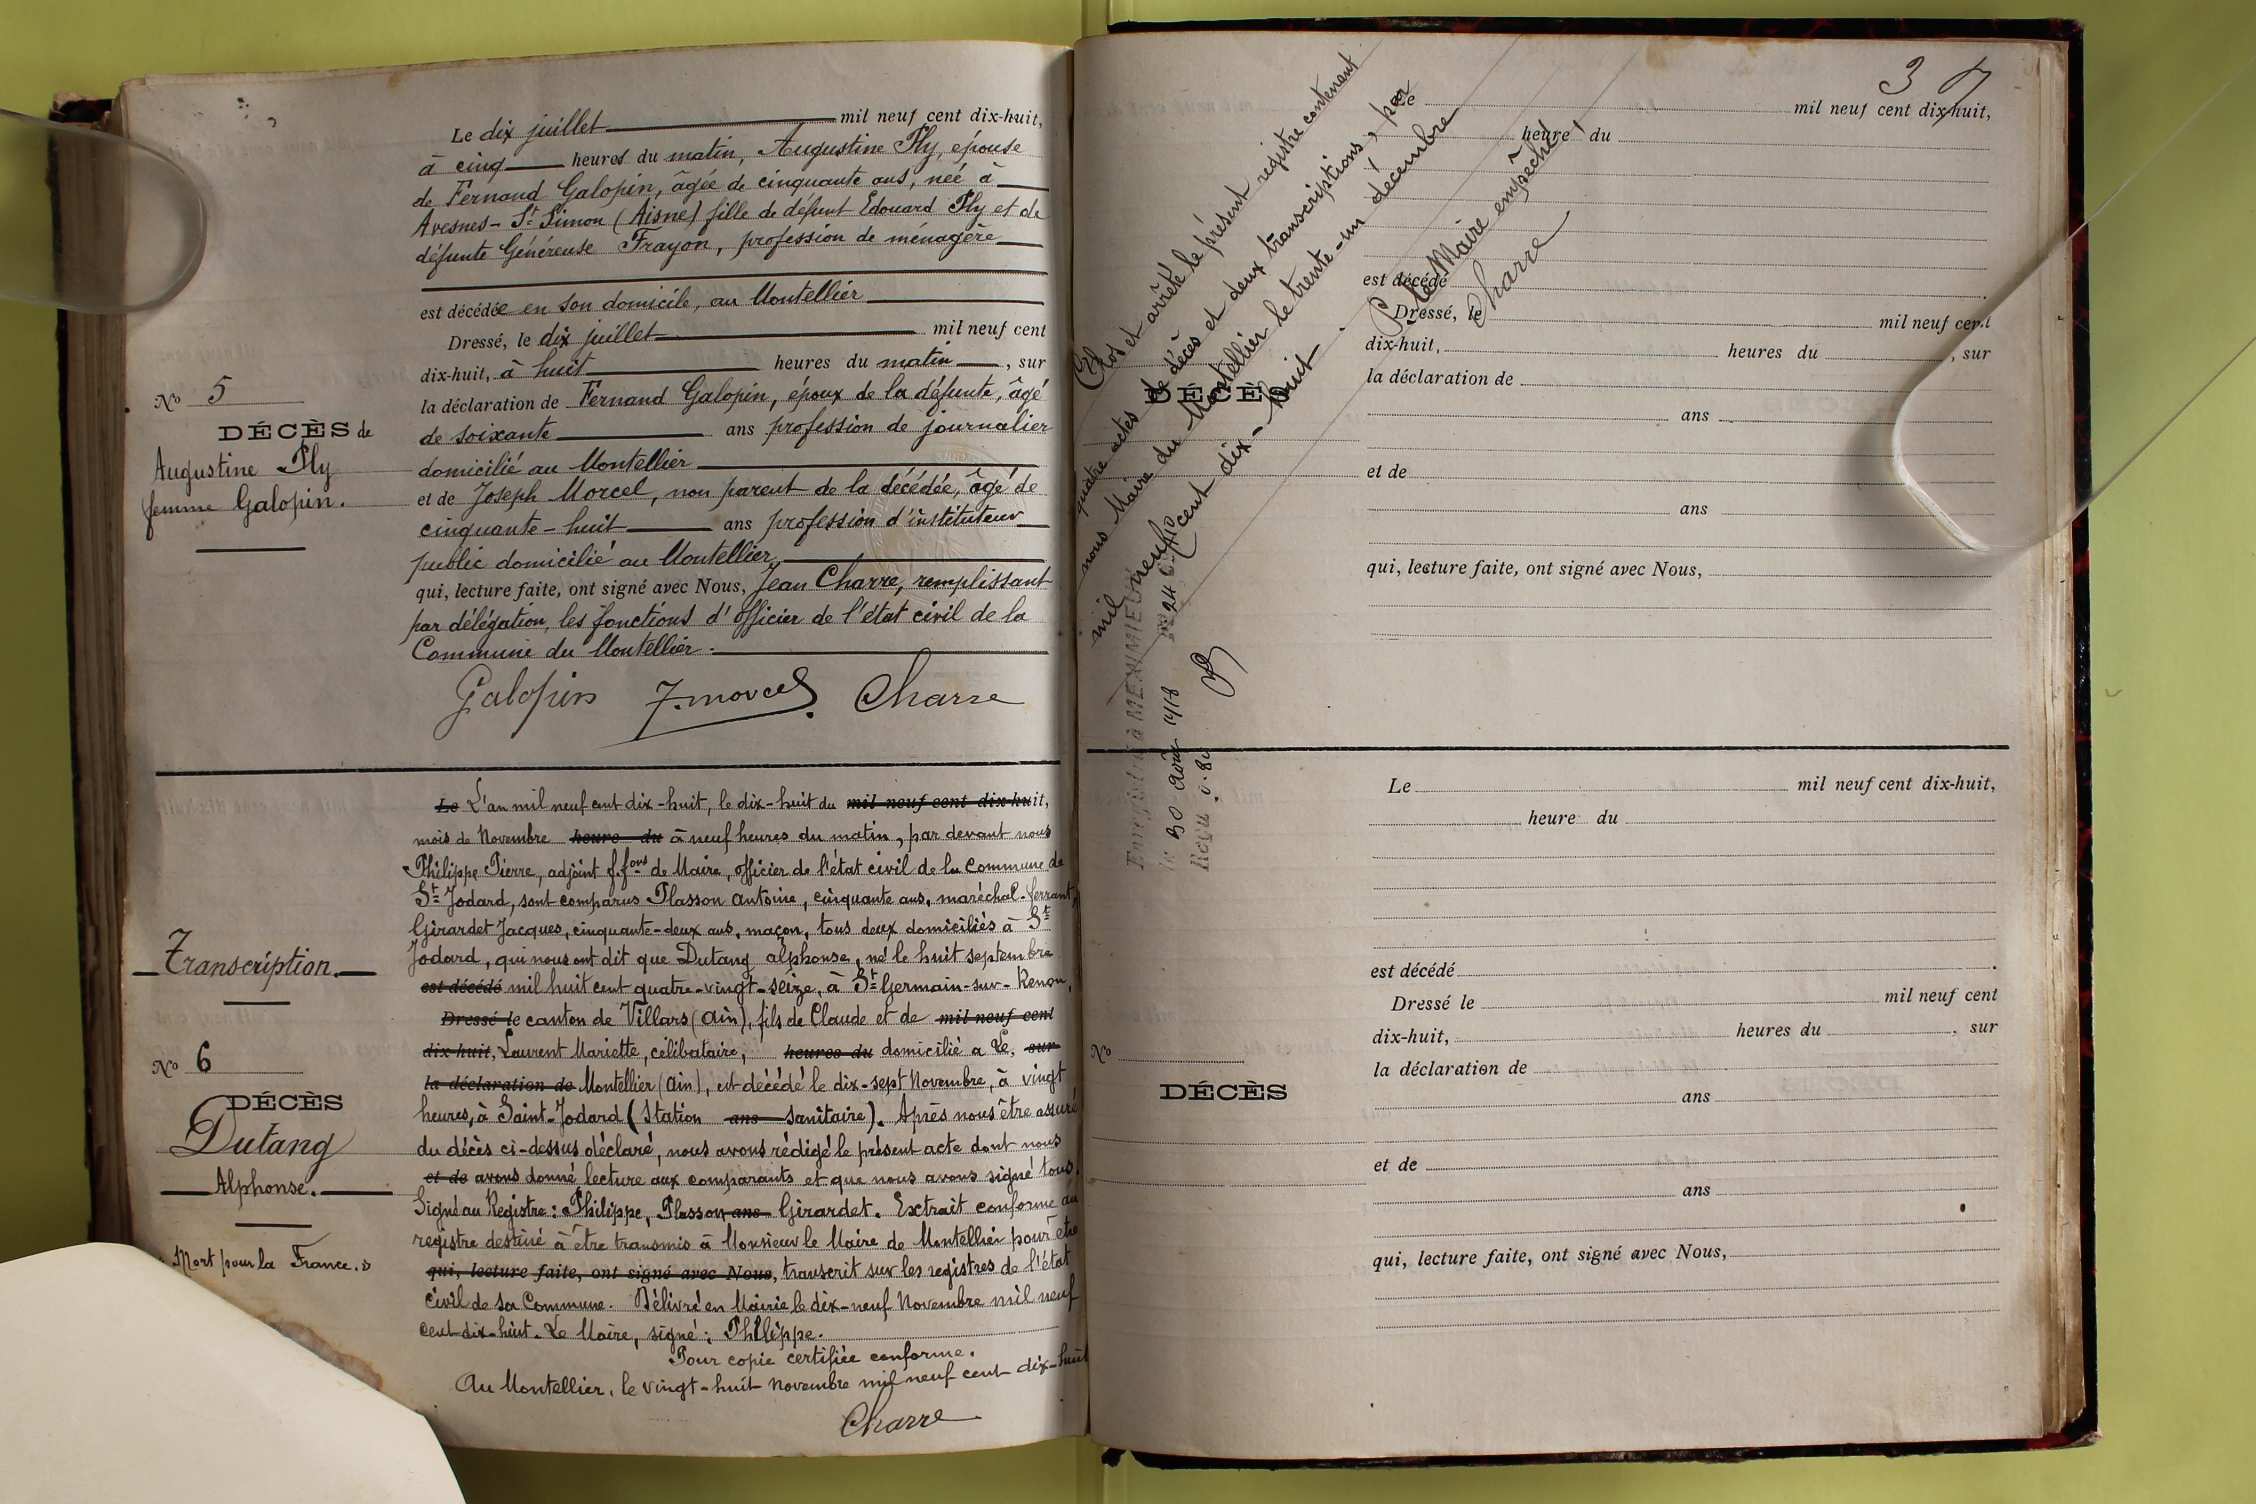 Le dix juillet mil neuf cent dix-huit,
à cinq heures du matin, Augustine Ply, épouse
de Fernand Galopin, âgée de cinquante ans, née à
Avesnes-St Simon (Aisne) fille de défunt Edouard Ply et de
défunte Généreuse Frayon, profession de ménagère
est décédée en son domicile, au Montellier
Dressé, le dix juillet mil neuf cent
dix-huit, à huit heures du matin, sur
la déclaration de Fernand Galopin, époux de la défunte, âgé
de soixante ans profession de journalier
domicilié au Montellier
et de Joseph Morcel, non parent de la décédée, âgé de
cinquante-huit ans profession d'instituteur
public domicilié au Montellier
qui, lecture faite, ont signé avec Nous, Jean Charre, remplissant
par délégation, les fonctions d'officier de l'état civil de la
Commune du Montellier.
Galopin J. Morcel Charre
No 5
DÉCÈS de
Augustine Ply
femme Galopin.
Le L'an mil neuf cent dix-huit, le dix-huit du mil neuf cent dix-huit,
mois de Novembre heure du à neuf heures du matin, par devant nous
Philippe Pierre, adjoint f.fons de Maire, officier de l'état civil de la Commune de
St Jodard, sont comparus Plasson Antoine, cinquante ans, maréchal-ferrant,
Girardet Jacques, cinquante-deux ans, maçon, tous deux domiciliés à St
Jodard, qui nous ont dit que Dutang Alphonse, né le huit septembre
est décédé mil huit cent quatre-vingt-seize, à St Germain-sur-Renon,
Dressé le canton de Villars (Ain), fils de Claude et de mil neuf cent
dix-huit, Laurent Mariette, célibataire, heures du domicilié a Le, sur
la déclaration de Montellier (Ain), est décédé le dix-sept Novembre, à vingt
heures, à Saint-Jodard (Station ans Sanitaire). Après nous être assuré
du décès ci-dessus déclaré, nous avons rédigé le présent acte dont nous
et de avons donné lecture aux comparants et que nous avons signé tous.
Signé au Registre: Philippe, Plasson, ans Girardet. Extrait conforme au
registre destiné à être transmis à Monsieur le Maire de Montellier pour être
qui, lecture faite, ont signé avec Nous, transcrit sur les registres de l'état
civil de sa Commune. Délivré en Mairie le dix-neuf Novembre mil neuf
cent-dix-huit. Le Maire, signé: Philippe.
Pour copie certifiée conforme.
Au Montellier, le vingt-huit novembre mil neuf cent dix-huit
Charre
Transcription.
No 6
DÉCÈS
Dutang
Alphonse.
Mort pour la France.
3
Clos et arrêté le présent registre contenant
quatre actes de décès et deux transcriptions, par
nous Maire du Montellier le trente-un décembre
mil neuf cent dix-huit.
P. le Maire empêché,
Charre
Enregistré à MEXIMIEUX
le 30 août 1918
Reçu:
Le mil neuf cent dix-huit,
heure du
est décédé
Dressé, le mil neuf cent
dix-huit, heures du , sur
la déclaration de
ans
et de
ans
qui, lecture faite, ont signé avec Nous,
DÉCÈS
Le mil neuf cent dix-huit,
heure du
est décédé
Dressé le mil neuf cent
dix-huit, heures du . sur
la déclaration de
ans
et de
ans
qui, lecture faite, ont signé avec Nous,
No
DÉCÈS